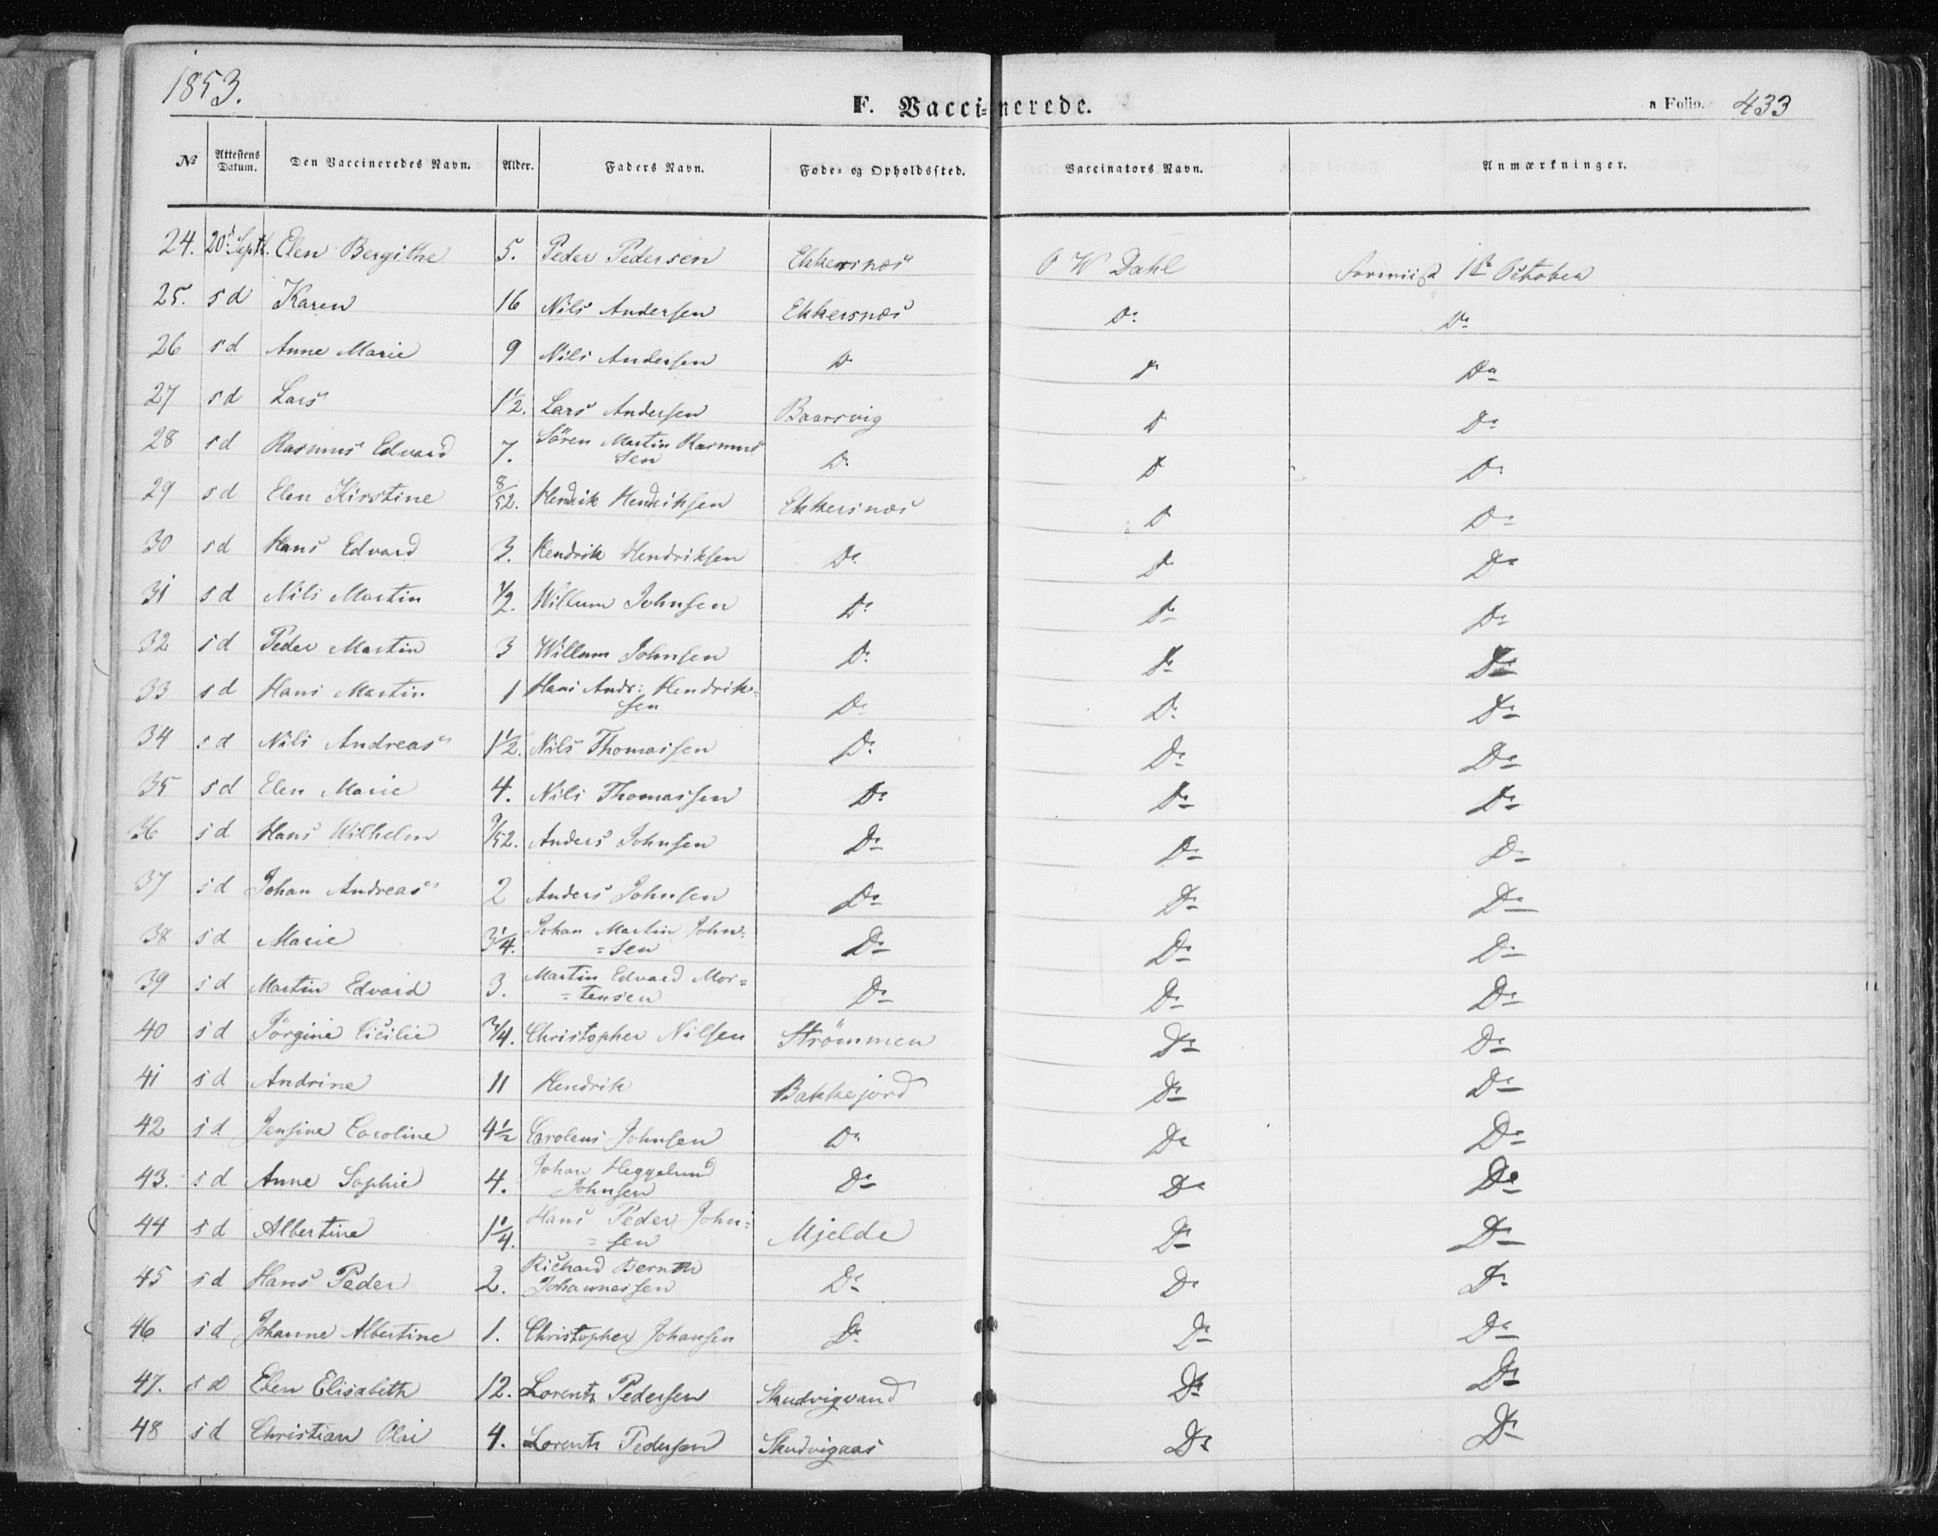 1853.
F. Vaccinerede.
a Folio. 433
No Attestens Datum. Den Vaccineredes Navn. Alder. Faders Navn. Føde- og Opholdssted. Vaccinators Navn. Anmærkninger.
24. 20d Sept. Elen Bergithe 5. Peder Pedersen Ekkersnæs O W Dahl October
25. s d Karen 16 Nils Andersen Ekkersnæs Do Do
26 s d Anne Marie 9 Nils Andersen Do Do Do
27 s d Lars 1½. Lars Andersen Baarsvig Do Do
28 s d Rasmus Edvard 7. Sören Martin Rasmus
sen Do Do Do
29 s d Elen Kirstine 8/52. Hendrik Hendriksen Ekkersnæs Do Do
30 s d Hans Edvard 3. Hendrik Hendriksen Do Do Do
31 s d Nils Martin ½. Willum Johnsen Do Do Do
32 s d Peder Martin 3 Willum Johnsen Do Do Do
33 s d Hans Martin 1 Hans Andr: Hendrik-
sen Do Do Do
34 s d Nils Andreas 1½. Nils Thomassen Do Do Do
35 s d Elen Marie 4. Nils Thomassen Do Do Do
36 s d Hans Wilhelm 9/52. Anders Johnsen Do Do Do
37 s d Johan Andreas 2 Anders Johnsen Do Do Do
38 s d Marie 3¼. Johan Martin John=
=sen Do Do Do
39 s d Martin Edvard 3. Martin Edvard Mor=
=tensen Do Do Do
40 s d Jörgine Cicilie ¾. Christopher Nilsen Strömmen Do Do
41 s d Andrine 11 Hendrik Bakkejord Do Do
42 s d Jensine Caroline 4½ Carolus Johnsen Do Do Do
43. s d Anne Sophie 4. Johan Heggelund
Johnsen Do Do Do
44 s d Albertine 1¼. Hans Peder John=
=sen Mjelde Do Do
45 s d Hans Peder 2. Richard Bernth
Johannessen Do Do Do
46 s d Johanne Albertine 1. Christopher Johansen Do Do Do
47. s d Elen Elisabeth 12. Lorents Pedersen Skudvigvand Do Do
48 s d Christian Olai 4. Lorents Pedersen Skudvigaas Do Do